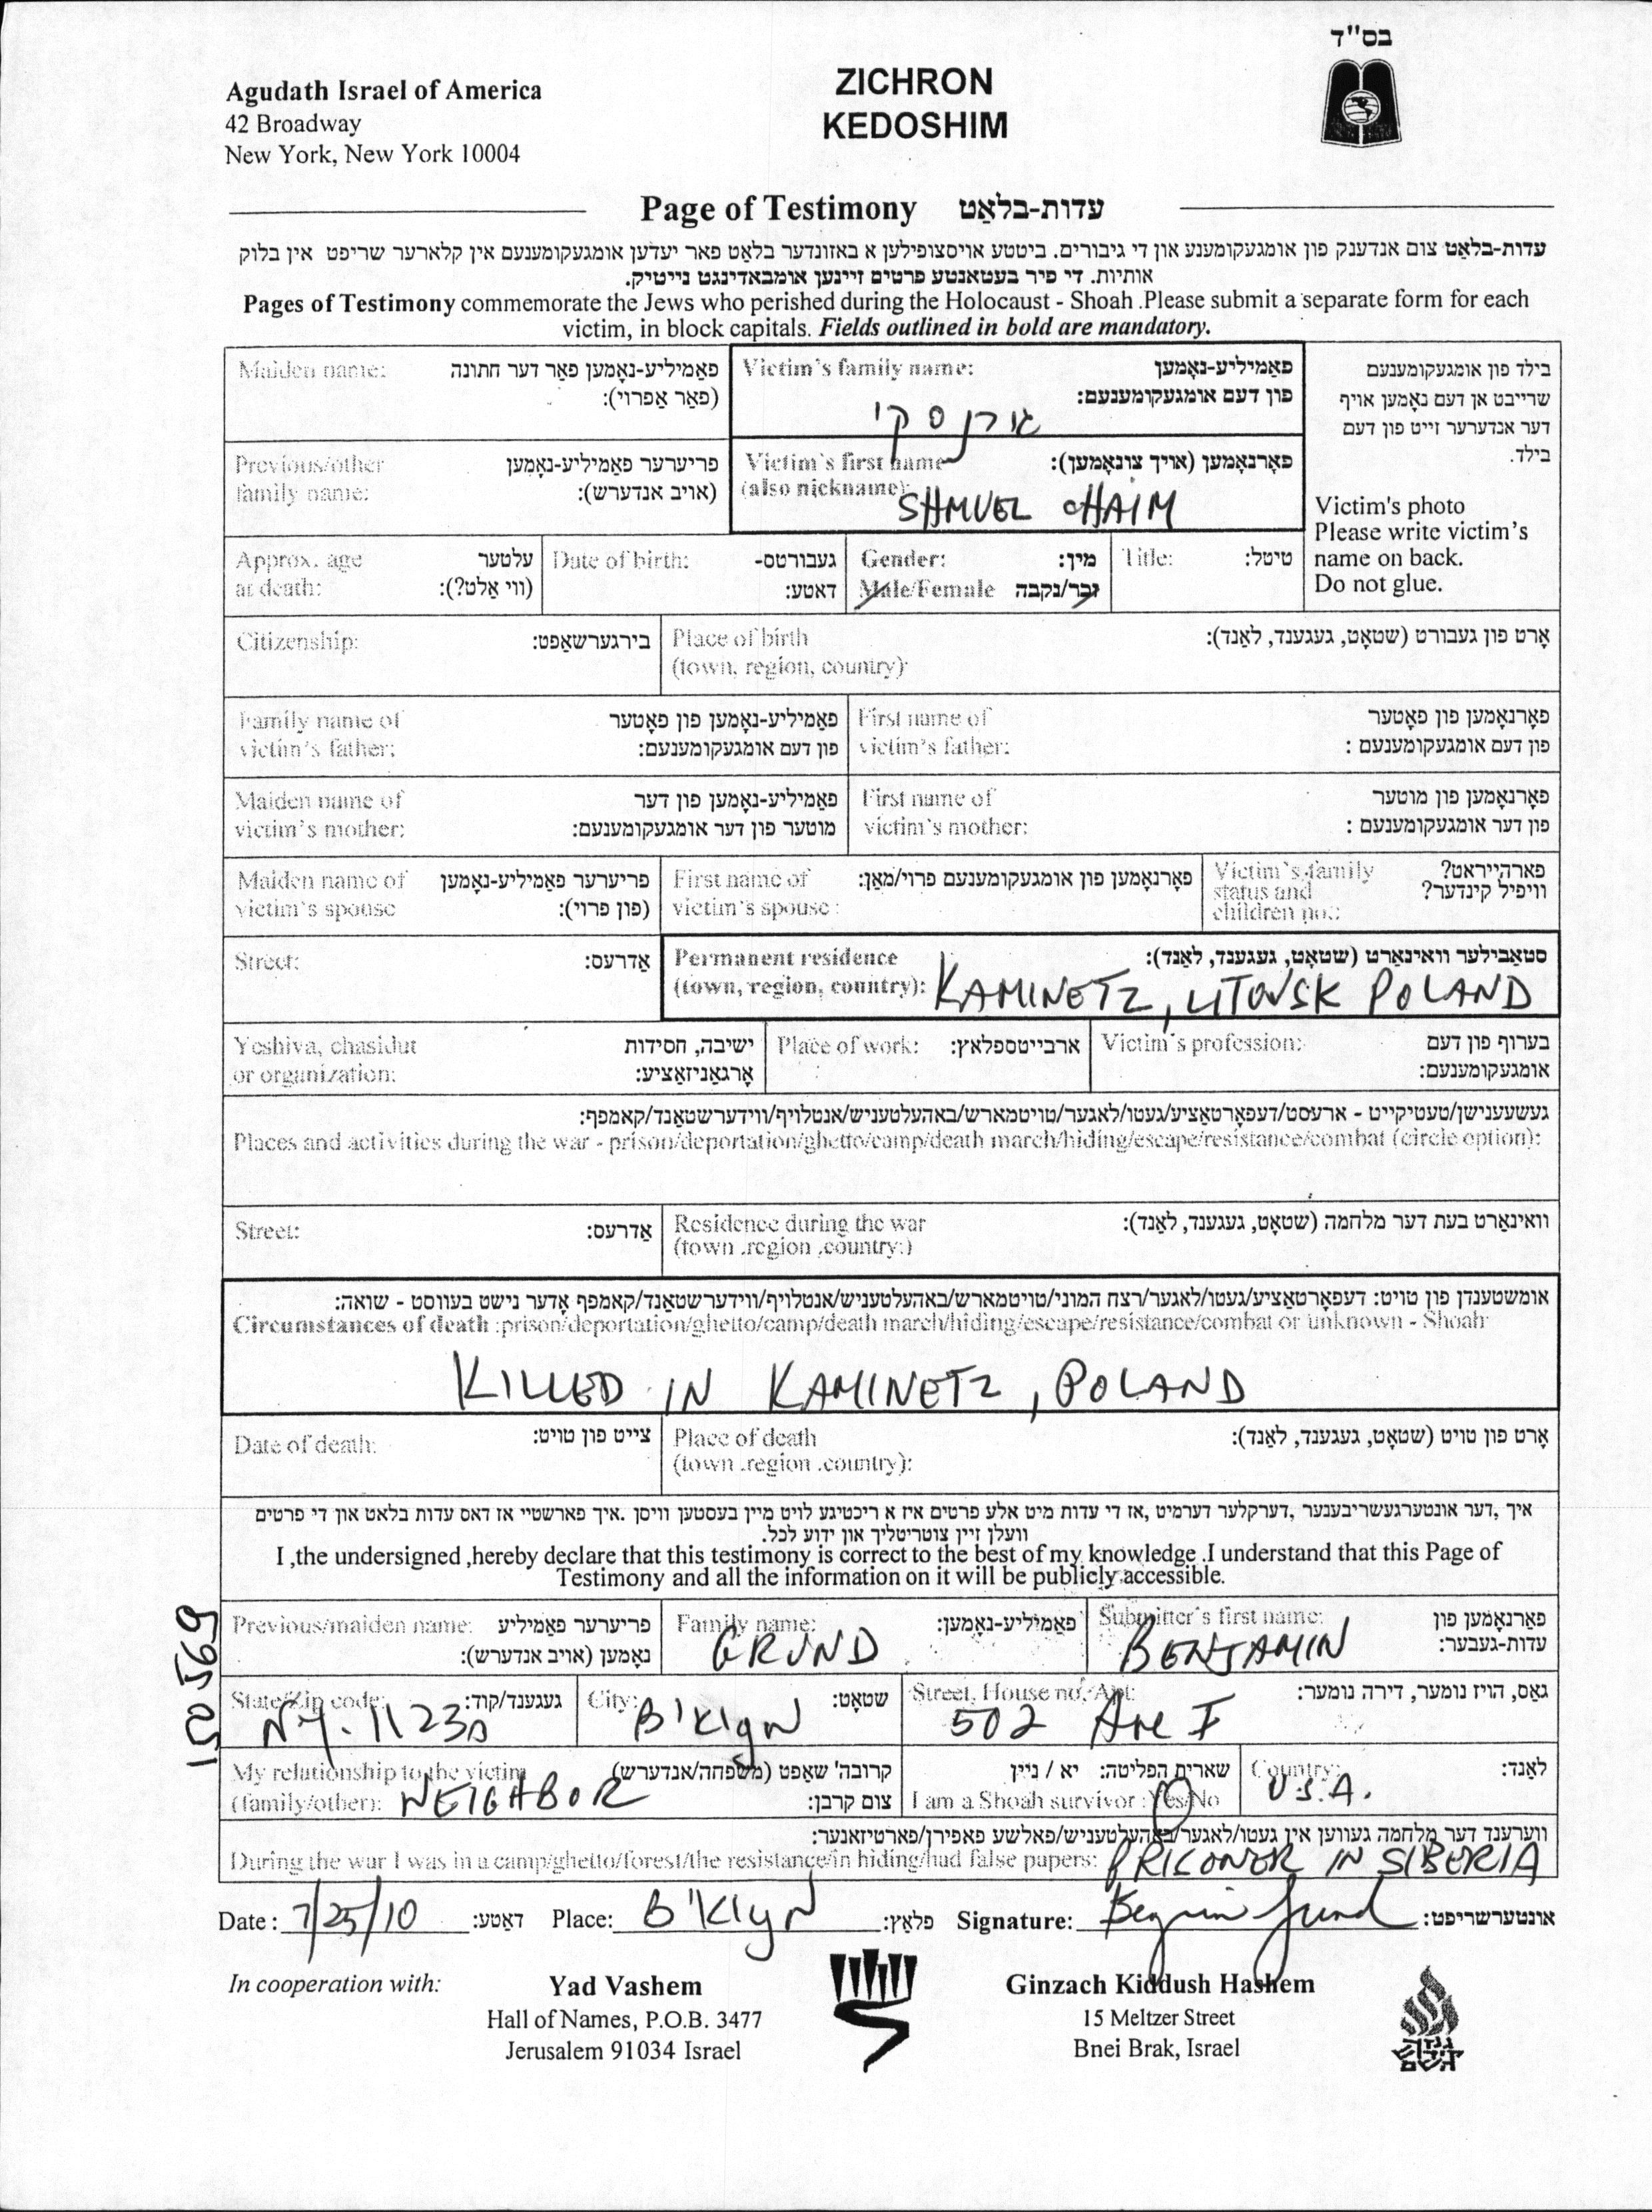 בס"ד
Agudath Israel of America
42 Broadway
New York, New York 10004
ZICHRON
KEDOSHIM
Page of Testimony עדות-בלאַט
עדות-בלאַט צום אנדענק פון אומגעקומענע און די גיבורים. ביטטע אויסצופילען א באזונדער בלאט פאר יעדען אומגעקומענעם אין קלארער שריפט אין בלוק
אותיות. די פיר בעטאנטע פרטים זיינען אומבאדינגט נייטיק.
Pages of Testimony commemorate the Jews who perished during the Holocaust - Shoah .Please submit a separate form for each
victim, in block capitals. Fields outlined in bold are mandatory.
Maiden name: פאַמיליע-נאָמען פאַר דער חתונה
(פאַר אַפרוי):
Victim's family name: פאַמיליע-נאָמען
פון דעם אומגעקומענעם:
גורנסקי
Previous/other פריערער פאַמיליע-נאָמען
family name: (אויב אנדערש):
Victim's first name פאָרנאָמען (אויך צונאָמען):
(also nickname): SHMUEL CHAIM
בילד פון אומגעקומענעם
שרייבט אן דעם נאָמען אויף
דער אנדערער זייט פון דעם
בילד.
Victim's photo
Please write victim's
name on back.
Do not glue.
Approx. age עלטער
at death: (ווי אַלט?):
Date of birth: געבורטס-
דאטע:
Gender: מין:
Male/Female זכר/נקבה
Title: טיטל:
Citizenship: בירגערשאַפט:
Place of birth אָרט פון געבורט (שטאָט, געגענד, לאַנד):
(town, region, country):
Family name of פאַמיליע-נאָמען פון פאָטער
victim's father: פון דעם אומגעקומענעם:
First name of פאָרנאָמען פון פאָטער
victim's father: פון דעם אומגעקומענעם :
Maiden name of פאַמיליע-נאָמען פון דער
victim's mother: מוטער פון דער אומגעקומענעם:
First name of פאָרנאָמען פון מוטער
victim's mother: פון דער אומגעקומענעם :
Maiden name of פריערער פאַמיליע-נאָמען
victim's spouse (פון פרוי):
First name of פאָרנאָמען פון אומגעקומענעם פרוי/מאַן:
victim's spouse :
Victim's family פארהייראט?
status and וויפיל קינדער?
children no.:
Street: אַדרעס:
Permanent residence סטאַבילער וואוינאָרט (שטאָט, געגענד, לאַנד):
(town, region, country): KAMINETZ, LITOVSK POLAND
Yeshiva, chasidut ישיבה, חסידות
or organization: אָרגאַניזאַציע:
Place of work: ארבייטספלאץ:
Victim's profession: בערוף פון דעם
אומגעקומענעם:
געשעענישן/טעטיקייט - ארעסט/דעפאָרטאַציע/געטו/לאגער/טויטמארש/באהעלטעניש/אנטלויף/ווידערשטאַנד/קאמפף:
Places and activities during the war - prison/deportation/ghetto/camp/death march/hiding/escape/resistance/combat (circle option):
Street: אַדרעס:
Residence during the war וואוינאָרט בעת דער מלחמה (שטאָט, געגענד, לאַנד):
(town .region ,country:)
אומשטענדן פון טויט: דעפאָרטאַציע/געטו/לאגער/רצח המוני/טויטמארש/באהעלטעניש/אנטלויף/ווידערשטאַנד/קאמפף אָדער נישט בעווסט - שואה:
Circumstances of death :prison/deportation/ghetto/camp/death march/hiding/escape/resistance/combat or unknown - Shoah
KILLED IN KAMINETZ, POLAND
Date of death: צייט פון טויט:
Place of death אָרט פון טויט (שטאָט, געגענד, לאַנד):
(town .region .country):
איך ,דער אונטערגעשריבענער ,דערקלער דערמיט ,אז די עדות מיט אלע פרטים איז א ריכטיגע לויט מיין בעסטען וויסן .איך פארשטיי אז דאס עדות בלאט און די פרטים
וועלן זיין צוטריטליך און ידוע לכל.
I ,the undersigned ,hereby declare that this testimony is correct to the best of my knowledge .I understand that this Page of
Testimony and all the information on it will be publicly accessible.
Previous/maiden name: פריערער פאַמיליע
נאָמען (אויב אנדערש):
Family name: פאַמיליע-נאָמען:
GRUND
Submitter's first name: פאָרנאָמען פון
עדות-געבער:
BENJAMIN
State/Zip code: געגענד/קוד:
NY. 11230
City: שטאָט:
B'klyn
Street, House no./Apt: גאַס, הויז נומער, דירה נומער:
502 Ave F
My relationship to the victim קרובה'שאַפט (משפחה/אנדערש)
(family/other): NEIGHBOR צום קרבן:
שארית הפליטה: יא / ניין
I am a Shoah survivor :Yes/No
Country: לאַנד:
U.S.A.
ווערענד דער מלחמה געווען אין געטו/לאגער/באהעלטעניש/פאלשע פאפירן/פארטיזאנער:
During the war I was in a camp/ghetto/forest/the resistance/in hiding/had false papers: PRISONER IN SIBERIA
Date: 7/25/10 דאַטע: Place: B'klyn פלאַץ: Signature: Benjamin Grund אונטערשריפט:
150569
In cooperation with:
Yad Vashem
Hall of Names, P.O.B. 3477
Jerusalem 91034 Israel
Ginzach Kiddush Hashem
15 Meltzer Street
Bnei Brak, Israel
גנזך
קידוש
השם